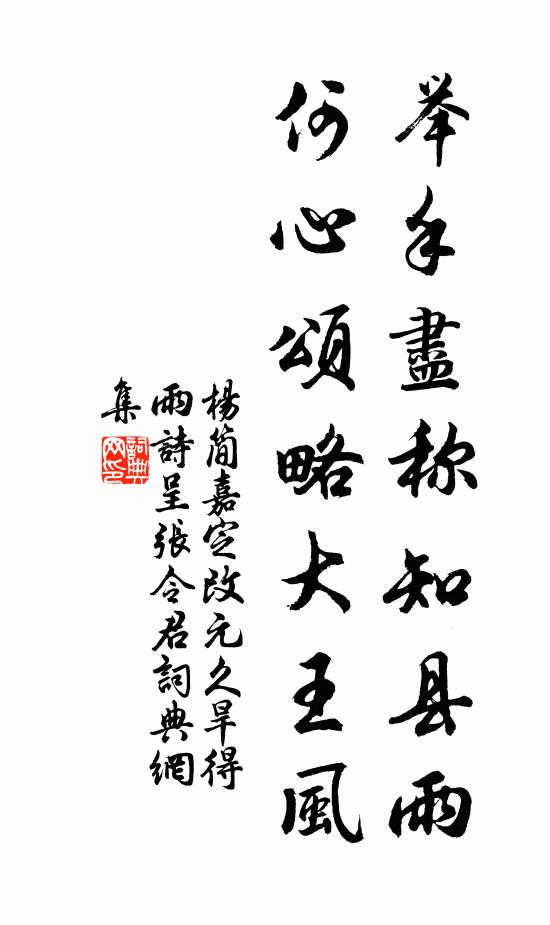 举手盡称知县雨
何心頌略大王風
楊简嘉定改元久旱得
雨詩呈張令君詞典網
集
詞典网印